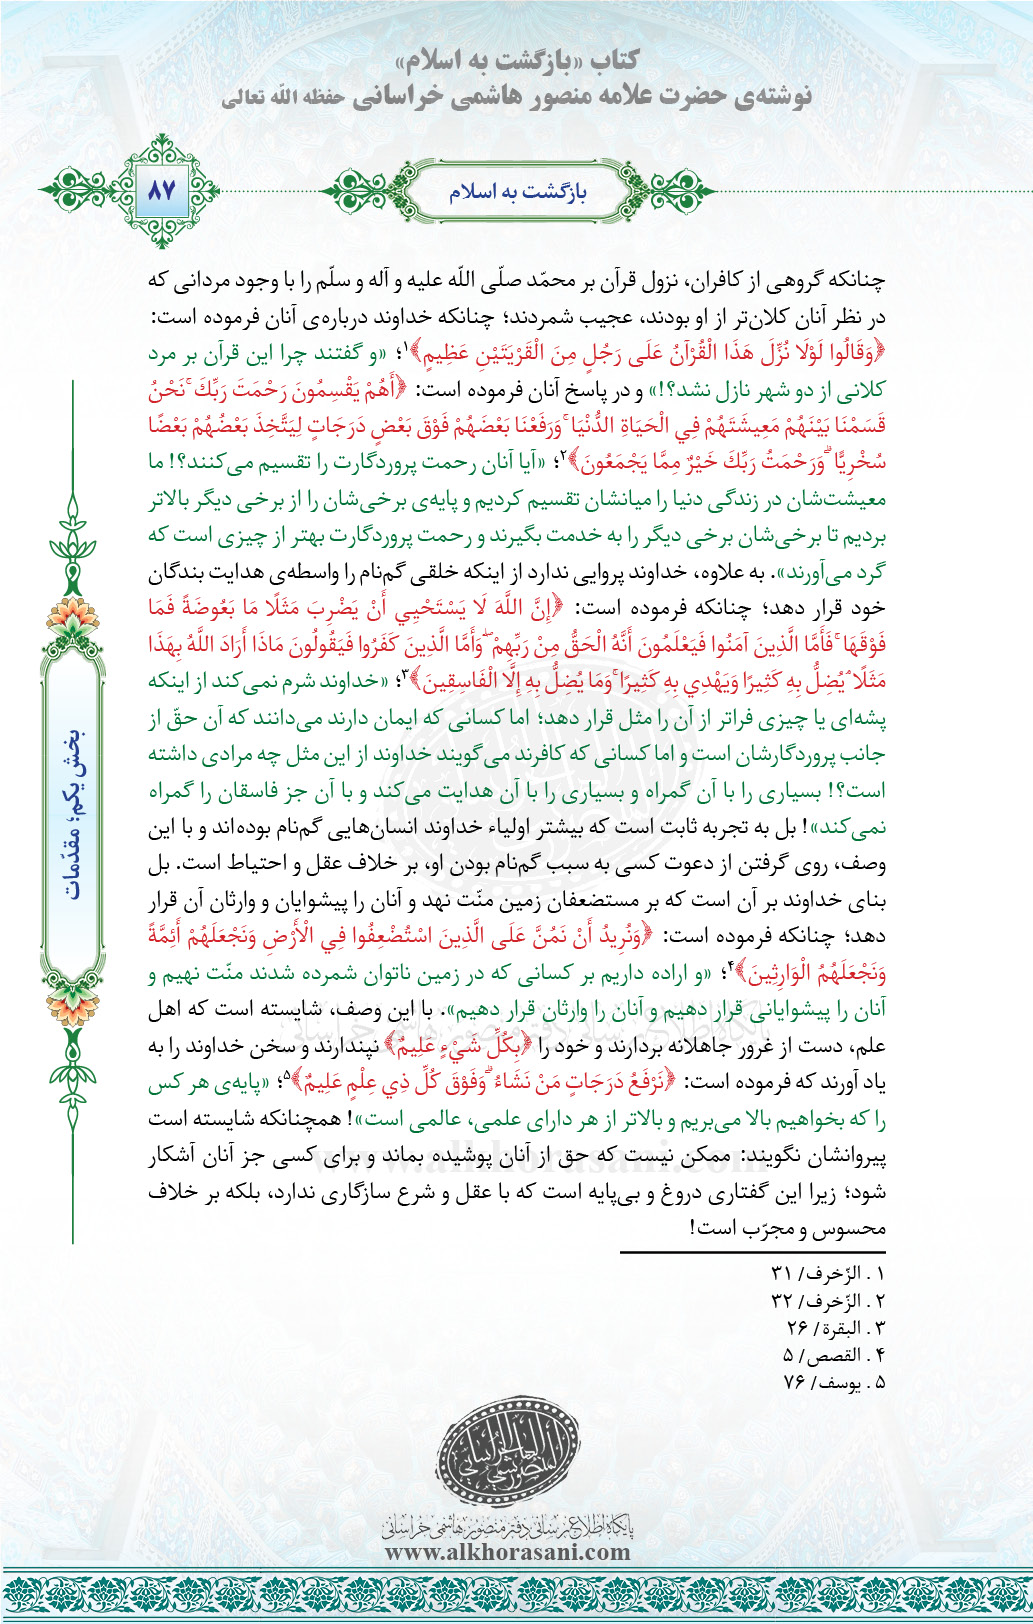 کتاب «بازگشت به اسلام»
نوشته‌ی حضرت علامه منصور هاشمی خراسانی حفظه الله تعالی
بازگشت به اسلام
۸۷
چنانکه گروهی از کافران، نزول قرآن بر محمّد صلّی اللّه علیه و آله و سلّم را با وجود مردانی که
در نظر آنان کلان‌تر از او بودند، عجیب شمردند؛ چنانکه خداوند درباره‌ی آنان فرموده است:
﴿وَقَالُوا لَوْلَا نُزِّلَ هَذَا الْقُرْآنُ عَلَى رَجُلٍ مِنَ الْقَرْيَتَيْنِ عَظِيمٍ﴾۱؛ «و گفتند چرا این قرآن بر مرد
کلانی از دو شهر نازل نشد؟!» و در پاسخ آنان فرموده است: ﴿أَهُمْ يَقْسِمُونَ رَحْمَتَ رَبِّكَ ۚ نَحْنُ
قَسَمْنَا بَيْنَهُمْ مَعِيشَتَهُمْ فِي الْحَيَاةِ الدُّنْيَا ۚ وَرَفَعْنَا بَعْضَهُمْ فَوْقَ بَعْضٍ دَرَجَاتٍ لِيَتَّخِذَ بَعْضُهُمْ بَعْضًا
سُخْرِيًّا ۗ وَرَحْمَتُ رَبِّكَ خَيْرٌ مِمَّا يَجْمَعُونَ﴾۲؛ «آیا آنان رحمت پروردگارت را تقسیم می‌کنند؟! ما
معیشت‌شان در زندگی دنیا را میانشان تقسیم کردیم و پایه‌ی برخی‌شان را از برخی دیگر بالاتر
بردیم تا برخی‌شان برخی دیگر را به خدمت بگیرند و رحمت پروردگارت بهتر از چیزی است که
گرد می‌آورند». به علاوه، خداوند پروایی ندارد از اینکه خلقی گم‌نام را واسطه‌ی هدایت بندگان
خود قرار دهد؛ چنانکه فرموده است: ﴿إِنَّ اللَّهَ لَا يَسْتَحْيِي أَنْ يَضْرِبَ مَثَلًا مَا بَعُوضَةً فَمَا
فَوْقَهَا ۚ فَأَمَّا الَّذِينَ آمَنُوا فَيَعْلَمُونَ أَنَّهُ الْحَقُّ مِنْ رَبِّهِمْ ۖ وَأَمَّا الَّذِينَ كَفَرُوا فَيَقُولُونَ مَاذَا أَرَادَ اللَّهُ بِهَذَا
مَثَلًا ۘ يُضِلُّ بِهِ كَثِيرًا وَيَهْدِي بِهِ كَثِيرًا ۚ وَمَا يُضِلُّ بِهِ إِلَّا الْفَاسِقِينَ﴾۳؛ «خداوند شرم نمی‌کند از اینکه
پشه‌ای یا چیزی فراتر از آن را مثل قرار دهد؛ اما کسانی که ایمان دارند می‌دانند که آن حقّ از
جانب پروردگارشان است و اما کسانی که کافرند می‌گویند خداوند از این مثل چه مرادی داشته
است؟! بسیاری را با آن گمراه و بسیاری را با آن هدایت می‌کند و با آن جز فاسقان را گمراه
نمی‌کند»! بل به تجربه ثابت است که بیشتر اولیاء خداوند انسان‌هایی گم‌نام بوده‌اند و با این
وصف، روی گرفتن از دعوت کسی به سبب گم‌نام بودن او، بر خلاف عقل و احتیاط است. بل
بنای خداوند بر آن است که بر مستضعفان زمین منّت نهد و آنان را پیشوایان و وارثان آن قرار
دهد؛ چنانکه فرموده است: ﴿وَنُرِيدُ أَنْ نَمُنَّ عَلَى الَّذِينَ اسْتُضْعِفُوا فِي الْأَرْضِ وَنَجْعَلَهُمْ أَئِمَّةً
وَنَجْعَلَهُمُ الْوَارِثِينَ﴾۴؛ «و اراده داریم بر کسانی که در زمین ناتوان شمرده شدند منّت نهیم و
آنان را پیشوایانی قرار دهیم و آنان را وارثان قرار دهیم». با این وصف، شایسته است که اهل
علم، دست از غرور جاهلانه بردارند و خود را ﴿بِكُلِّ شَيْءٍ عَلِيمٌ﴾ نپندارند و سخن خداوند را به
یاد آورند که فرموده است: ﴿نَرْفَعُ دَرَجَاتٍ مَنْ نَشَاءُ ۗ وَفَوْقَ كُلِّ ذِي عِلْمٍ عَلِيمٌ﴾۵؛ «پایه‌ی هر کس
را که بخواهیم بالا می‌بریم و بالاتر از هر دارای علمی، عالمی است»! همچنانکه شایسته است
پیروانشان نگویند: ممکن نیست که حق از آنان پوشیده بماند و برای کسی جز آنان آشکار
شود؛ زیرا این گفتاری دروغ و بی‌پایه است که با عقل و شرع سازگاری ندارد، بلکه بر خلاف
محسوس و مجرّب است!
۱ . الزّخرف/ ۳۱
۲ . الزّخرف/ ۳۲
۳ . البقرة/ ۲۶
۴ . القصص/ ۵
۵ . یوسف/ ۷۶
بخش یکم؛ مقدّمات
المنصور الهاشمي الخراساني
پایگاه اطلاع‌رسانی دفتر منصور هاشمی خراسانی
www.alkhorasani.com